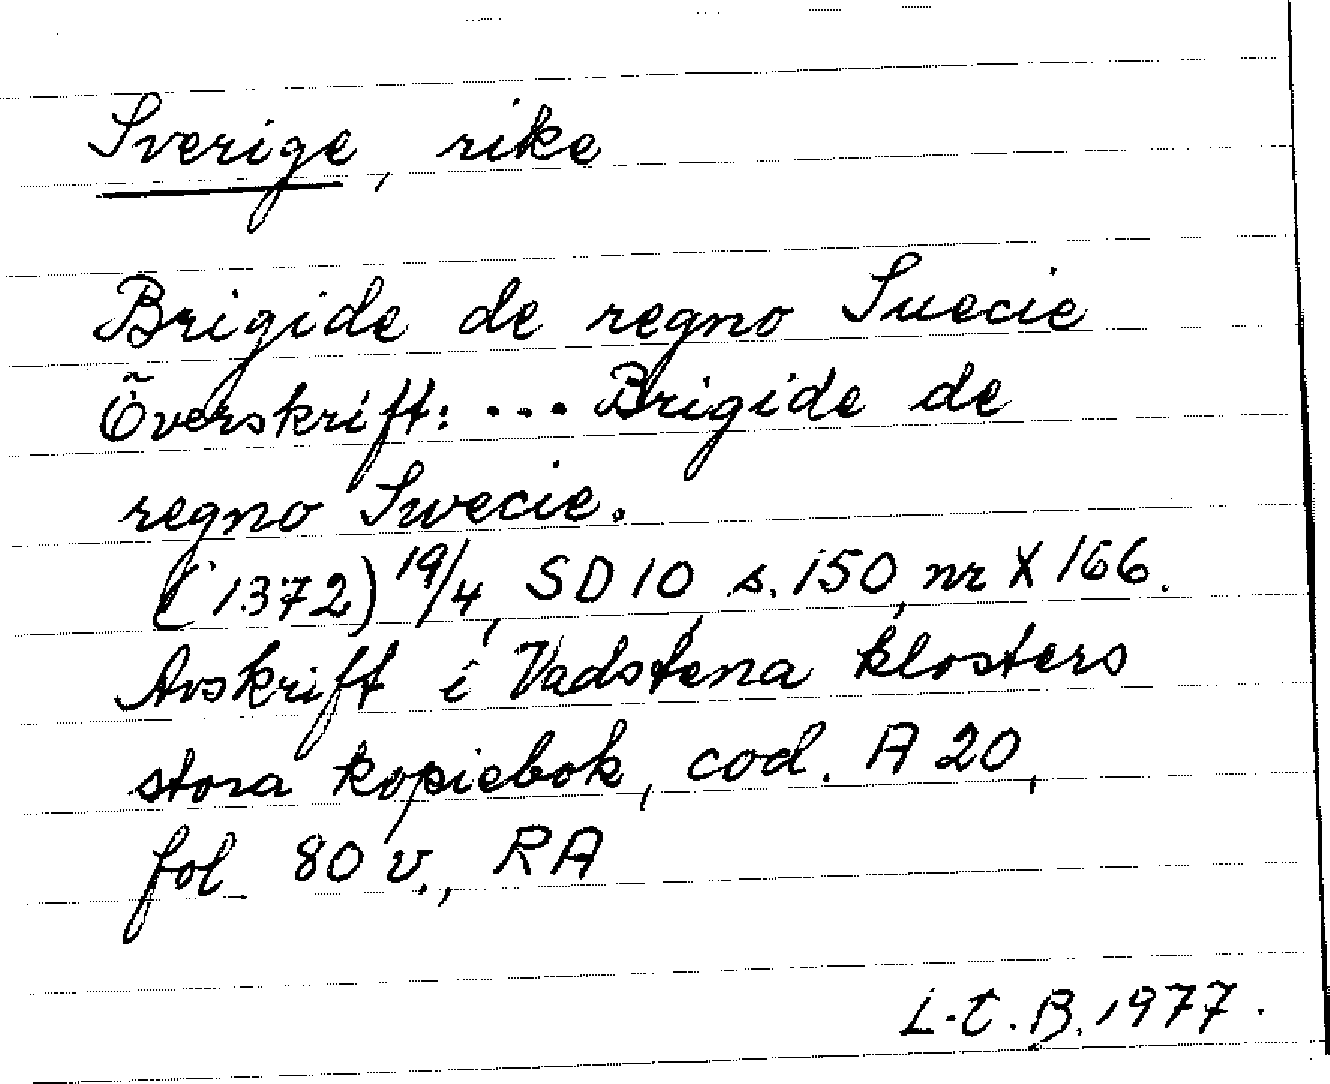 Sverige, rike
Brigide de regno Suecie
Överskrift: ... Brigide de
regno Swecie.
(1372) 19/4, SD 10, s. 150, nr X 166.
Avskrift i Vadstena klosters
stora kopiebok, cod. A 20,
fol 80 v., RA
L-E.B. 1977.